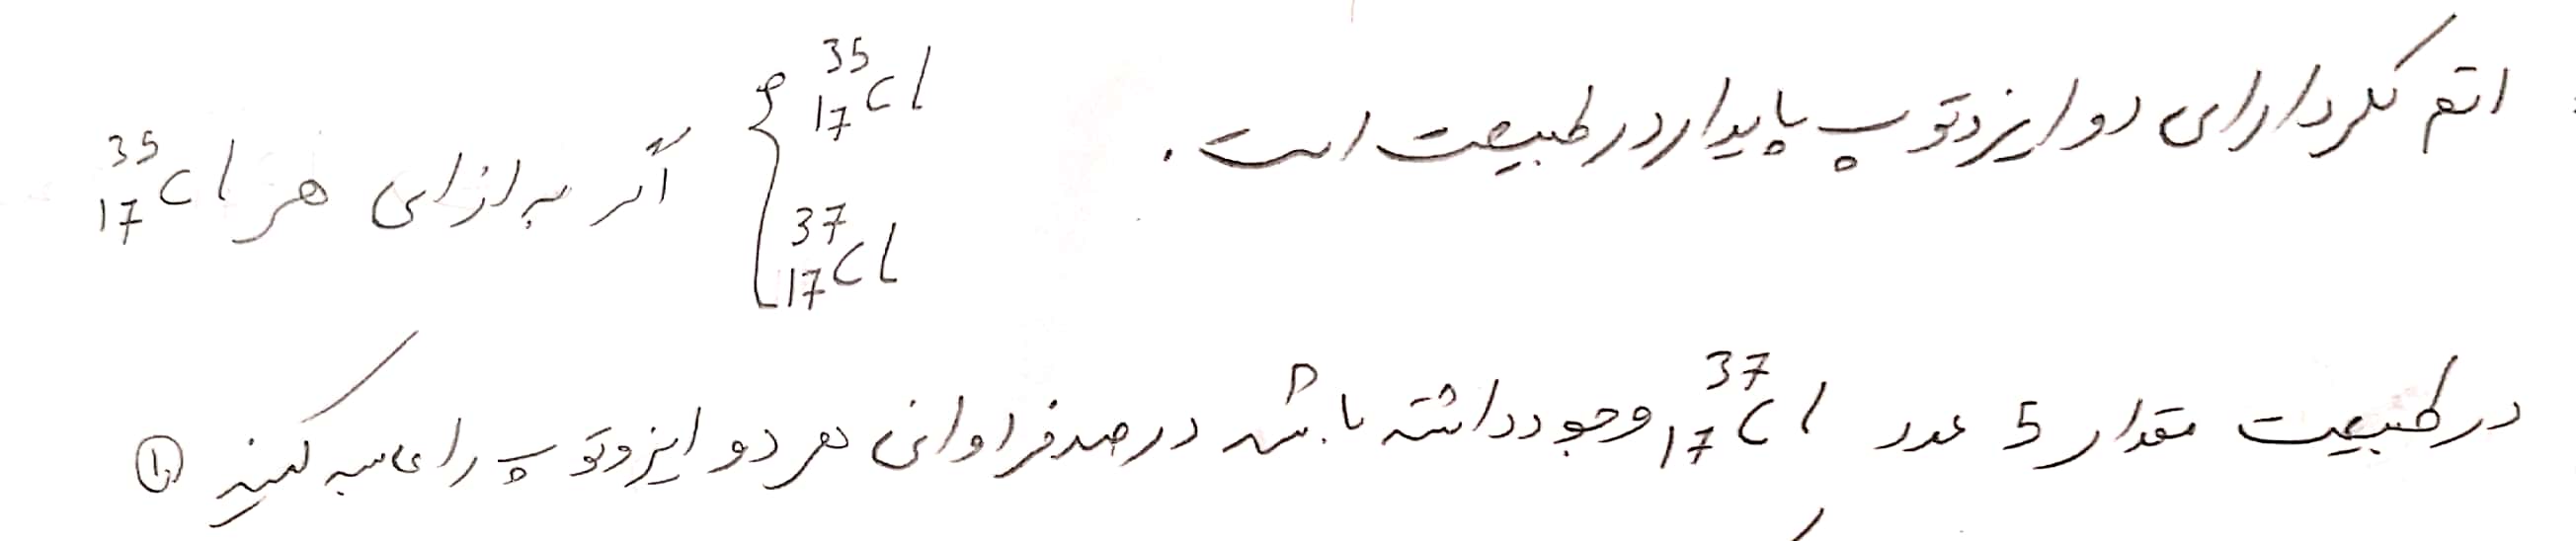 اتم کلر دارای دو ایزوتوپ پایدار در طبیعت است. { ³⁵₁₇Cl و ³⁷₁₇Cl اگر به ازای هر ³⁵₁₇Cl
در طبیعت مقدار 5 عدد ³⁷₁₇Cl وجود داشته باشد درصد فراوانی هر دو ایزوتوپ را محاسبه کنید ①